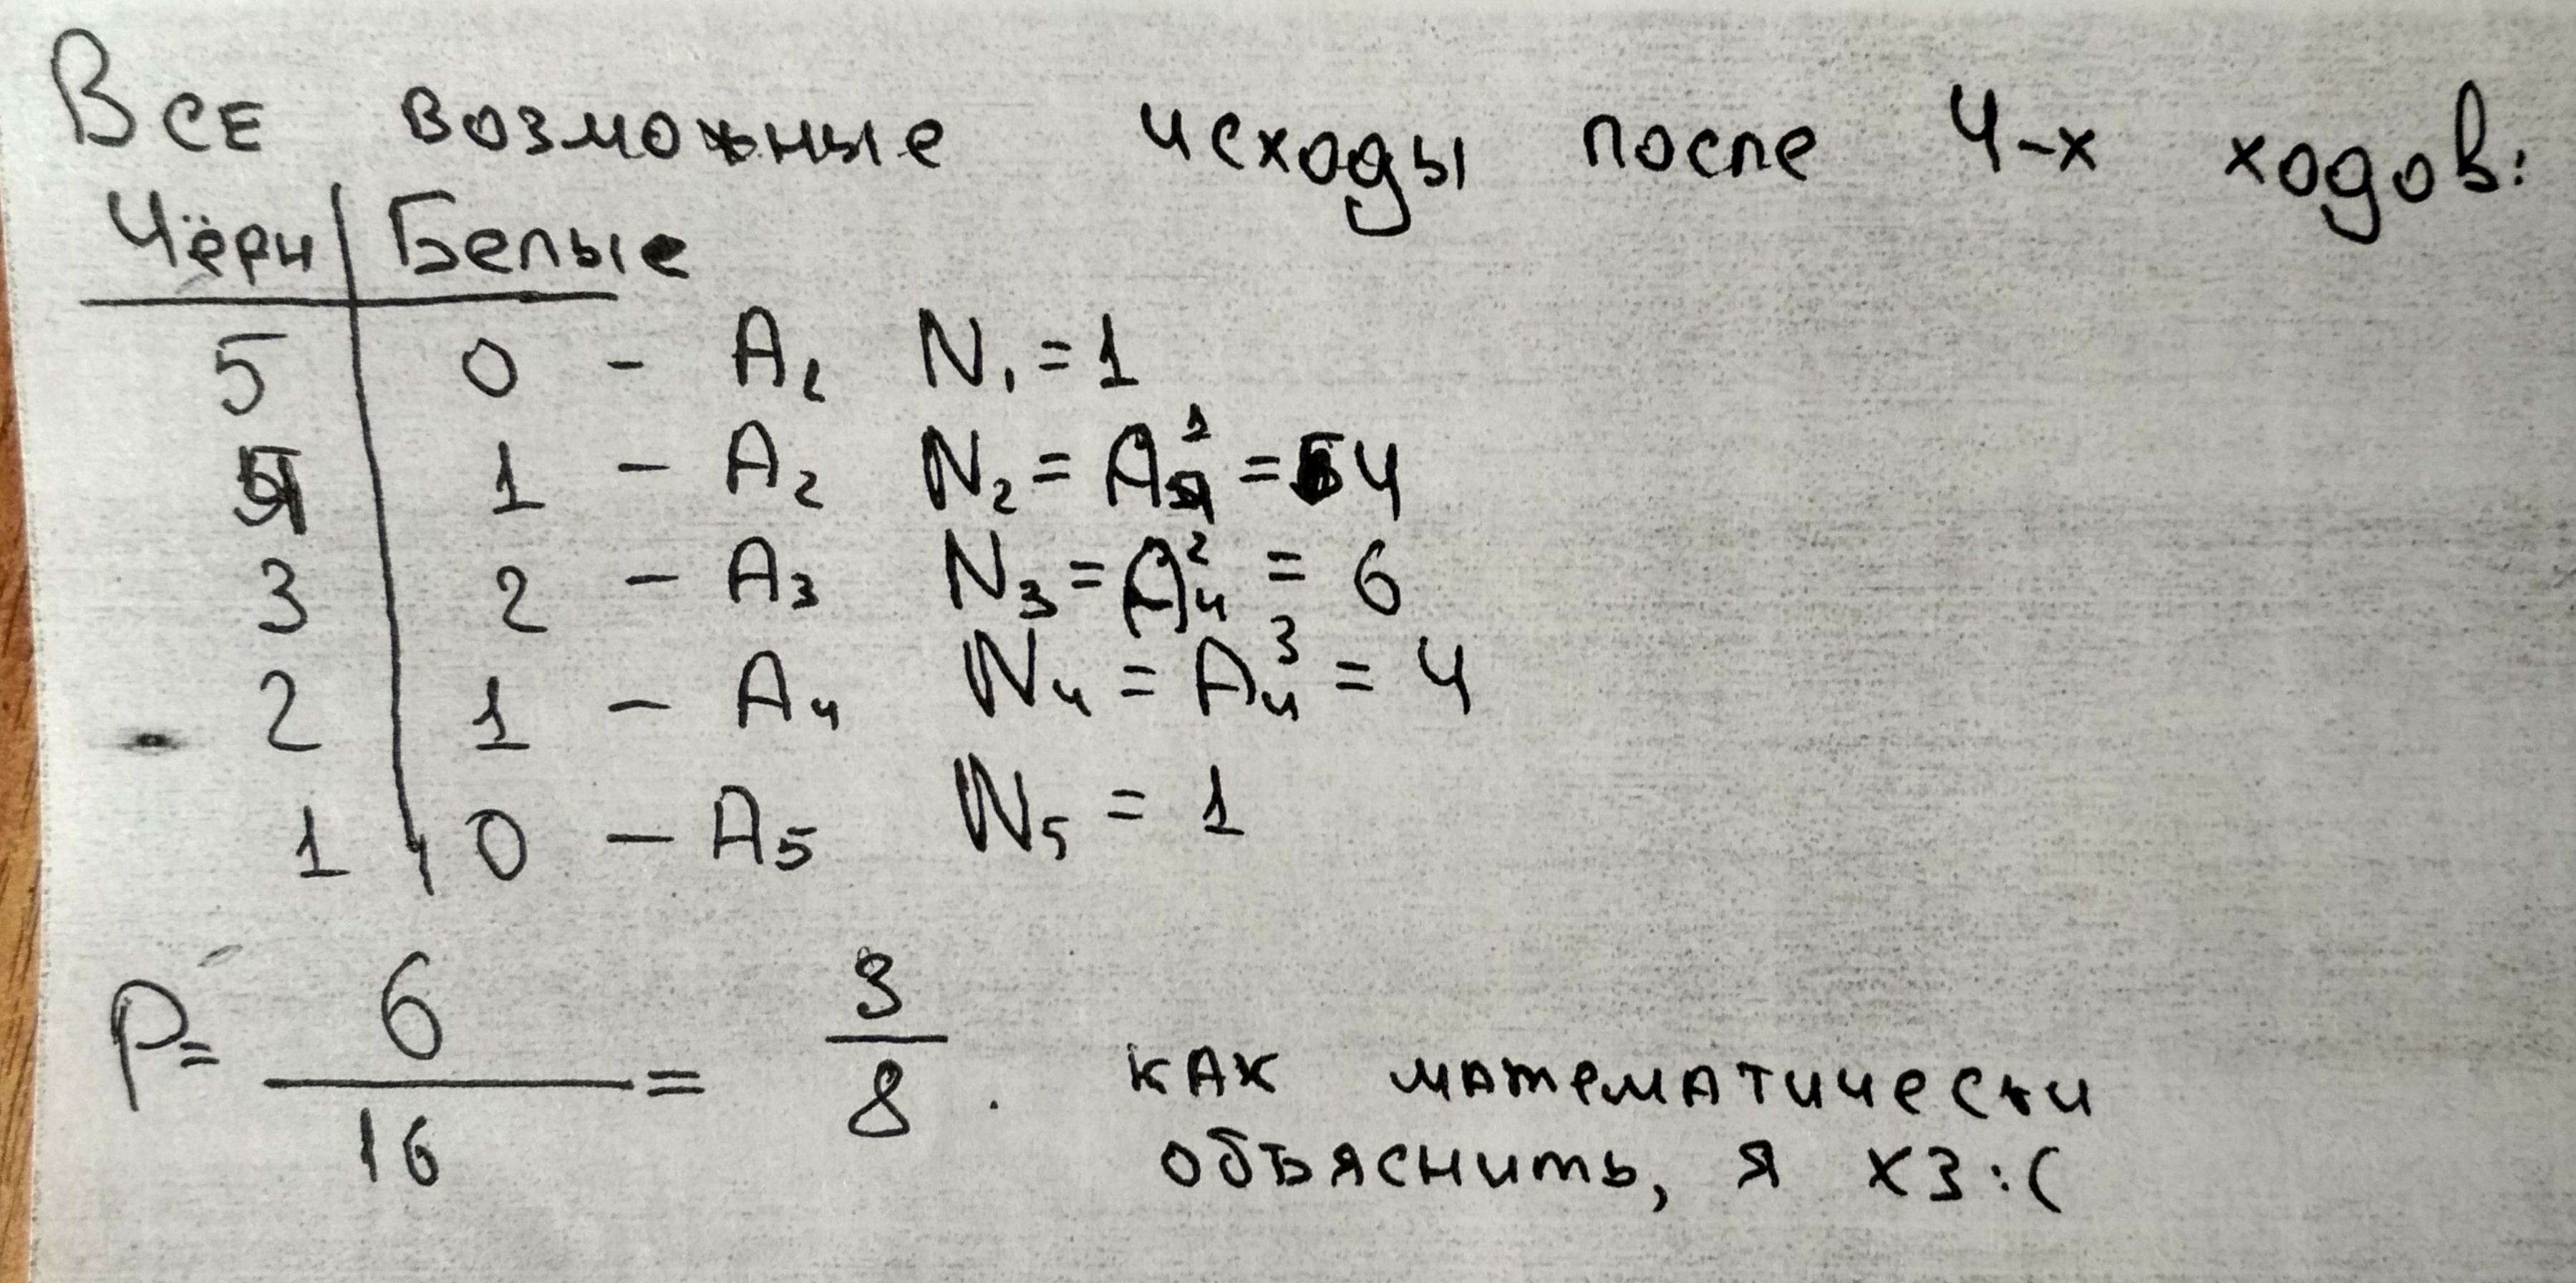 Все возможные исходы после 4-х ходов:
Чёрн | Белые
5 | 0 - A₁ N₁ = 1
4 | 1 - A₂ N₂ = A₄¹ = 4
3 | 2 - A₃ N₃ = A₄² = 6
2 | 1 - A₄ N₄ = A₄³ = 4
1 | 0 - A₅ N₅ = 1
P = 6/16 = 3/8. как математически
объяснить, я хз :(